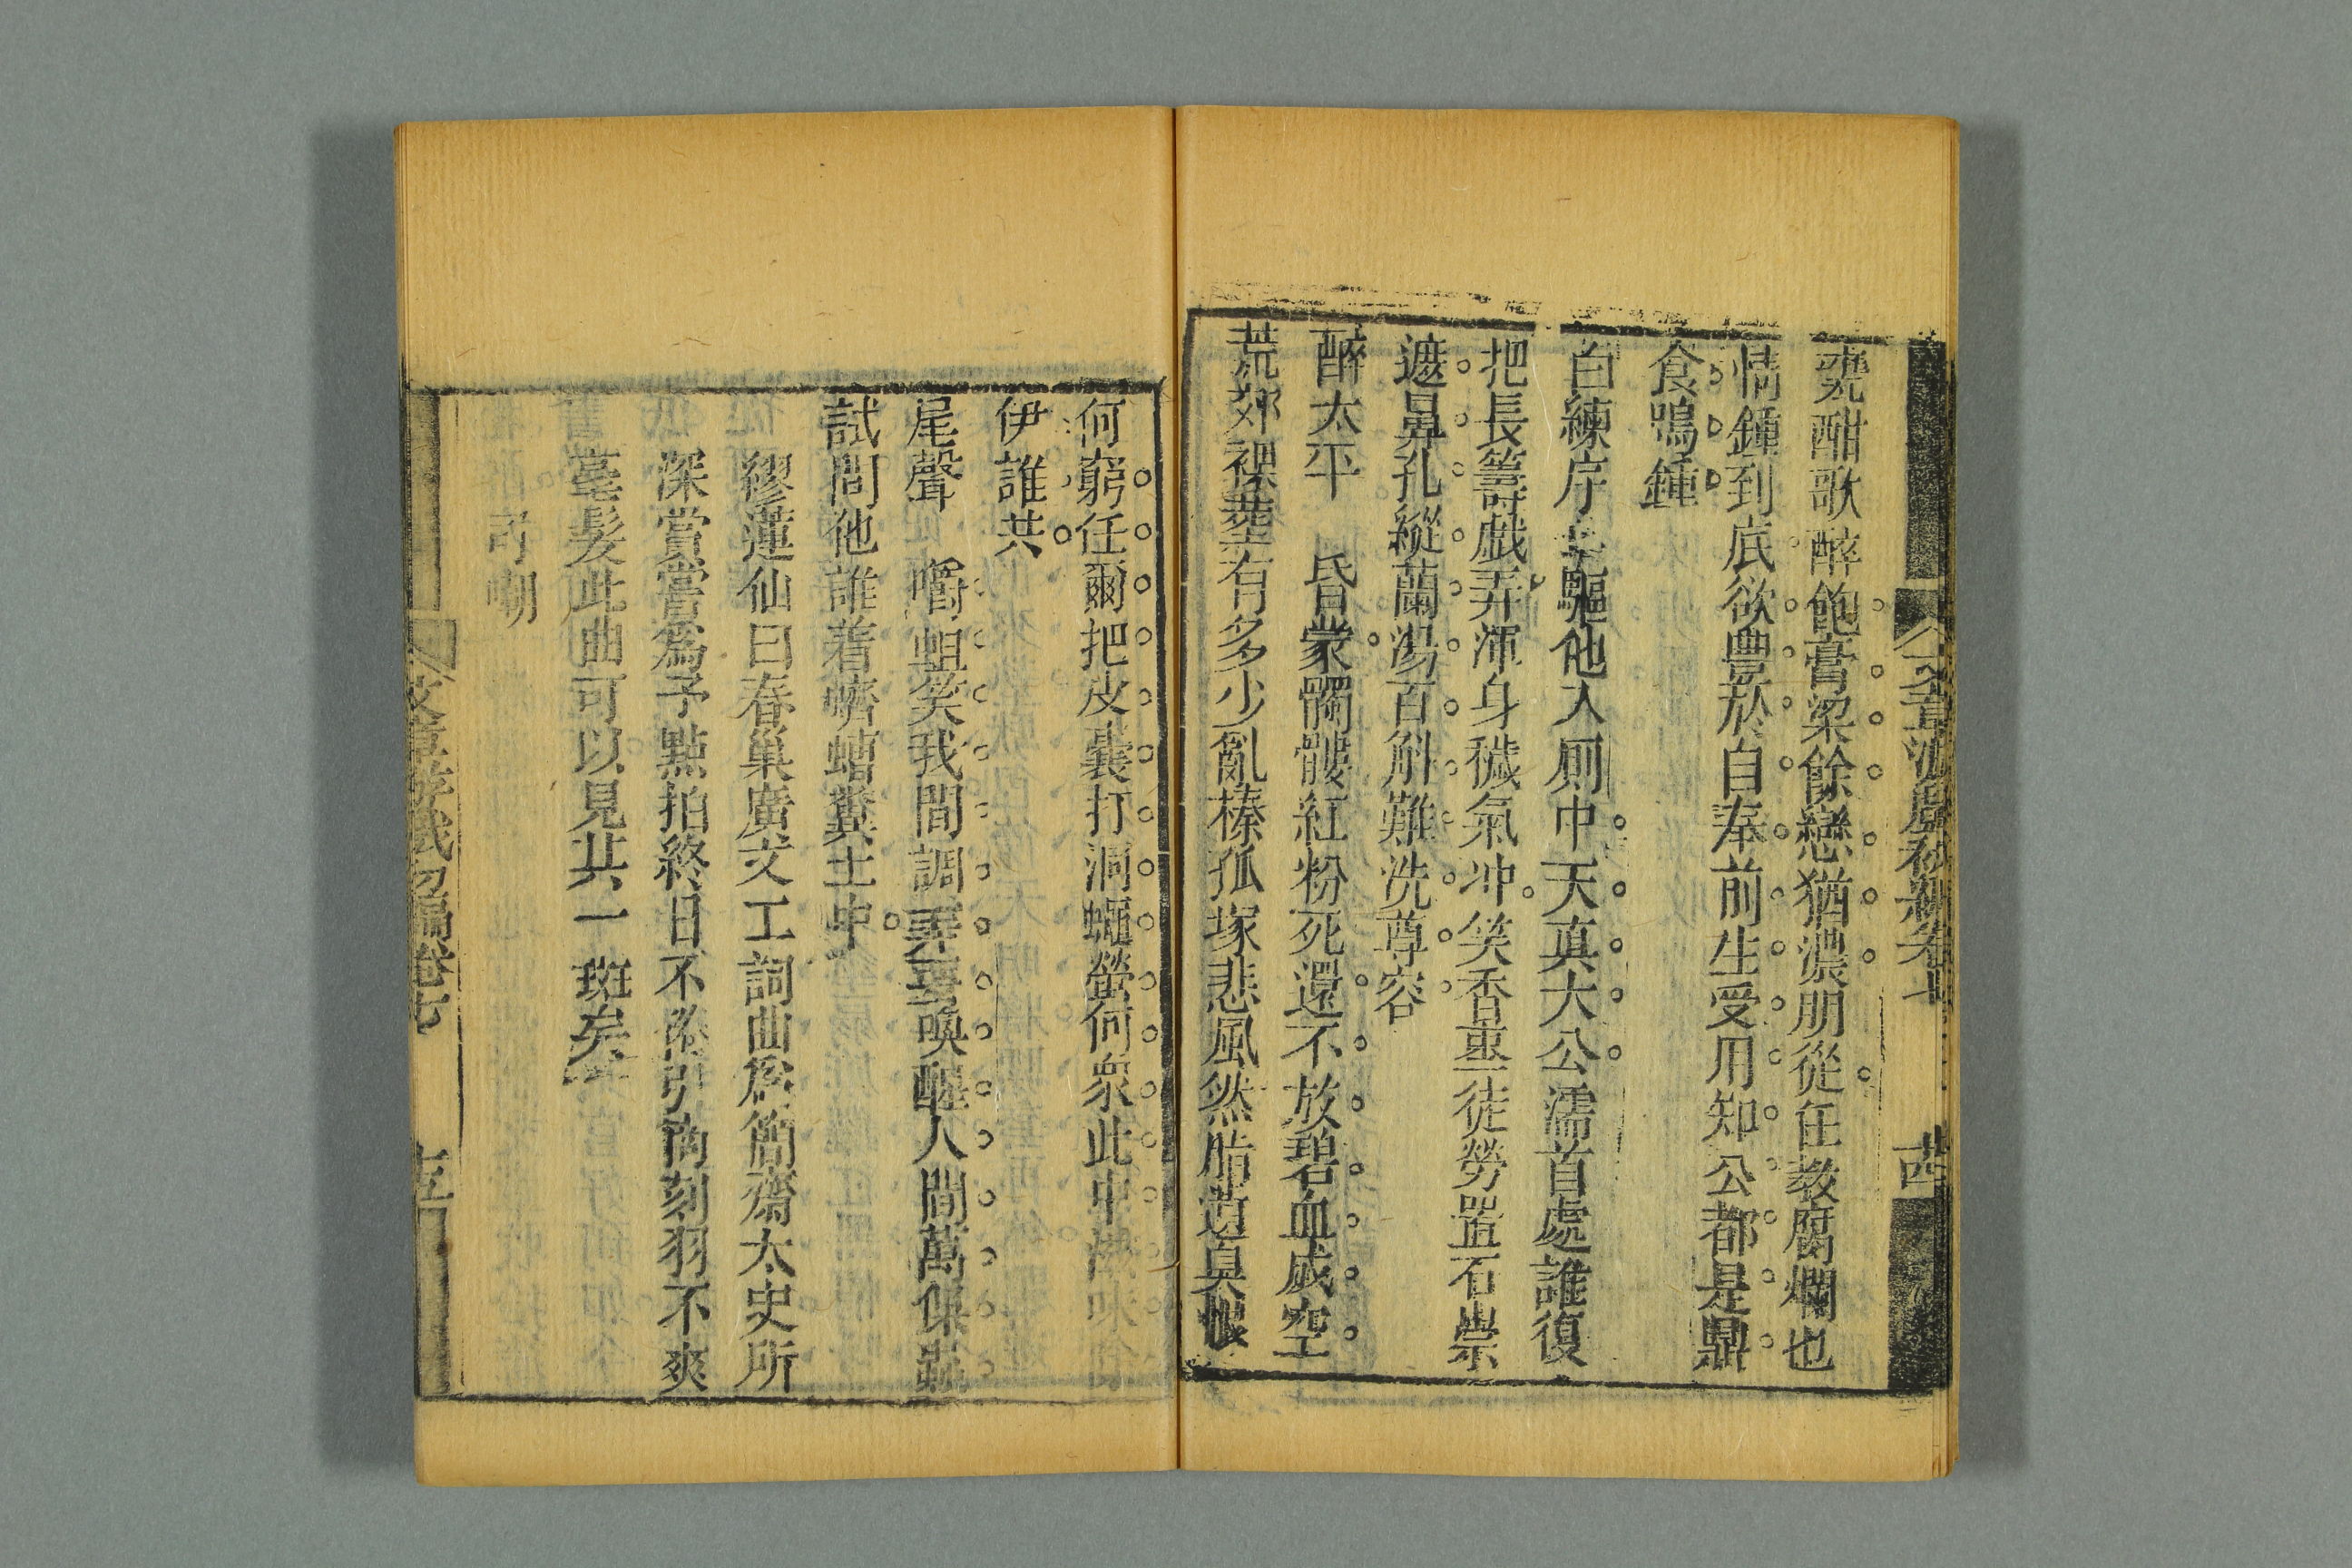 甕酣歌醉飽膏粱餘戀猶濃朋從任教腐爛也
情鍾到底欲豐於自奉前生受用知公都是鼎
食鳴鍾
白練序 驅他入厠中天真大公濡首處誰復
把長籌戯弄渾身穢氣冲笑香棗徒勞置石崇
遮鼻孔縱蘭湯百斛難洗尊容
醉太平 昏蒙髑髏紅粉死還不放碧血成空
荒郊裸葬有多少亂榛孤塚悲風然脂遺臭恨
何窮任爾把皮囊打洞蠅螢何衆此中
伊誰共
尾聲 嚼蛆笑我閒調弄要喚醒人間萬
試問他誰着蠐螬糞土中
繆蓮仙曰春巢廣文工詞曲爲簡齋太史所
深賞嘗爲予點拍終日不倦引商刻羽不爽
毫髮此曲可以見其一斑矣
討嘲
文章游戲初編卷七
十五